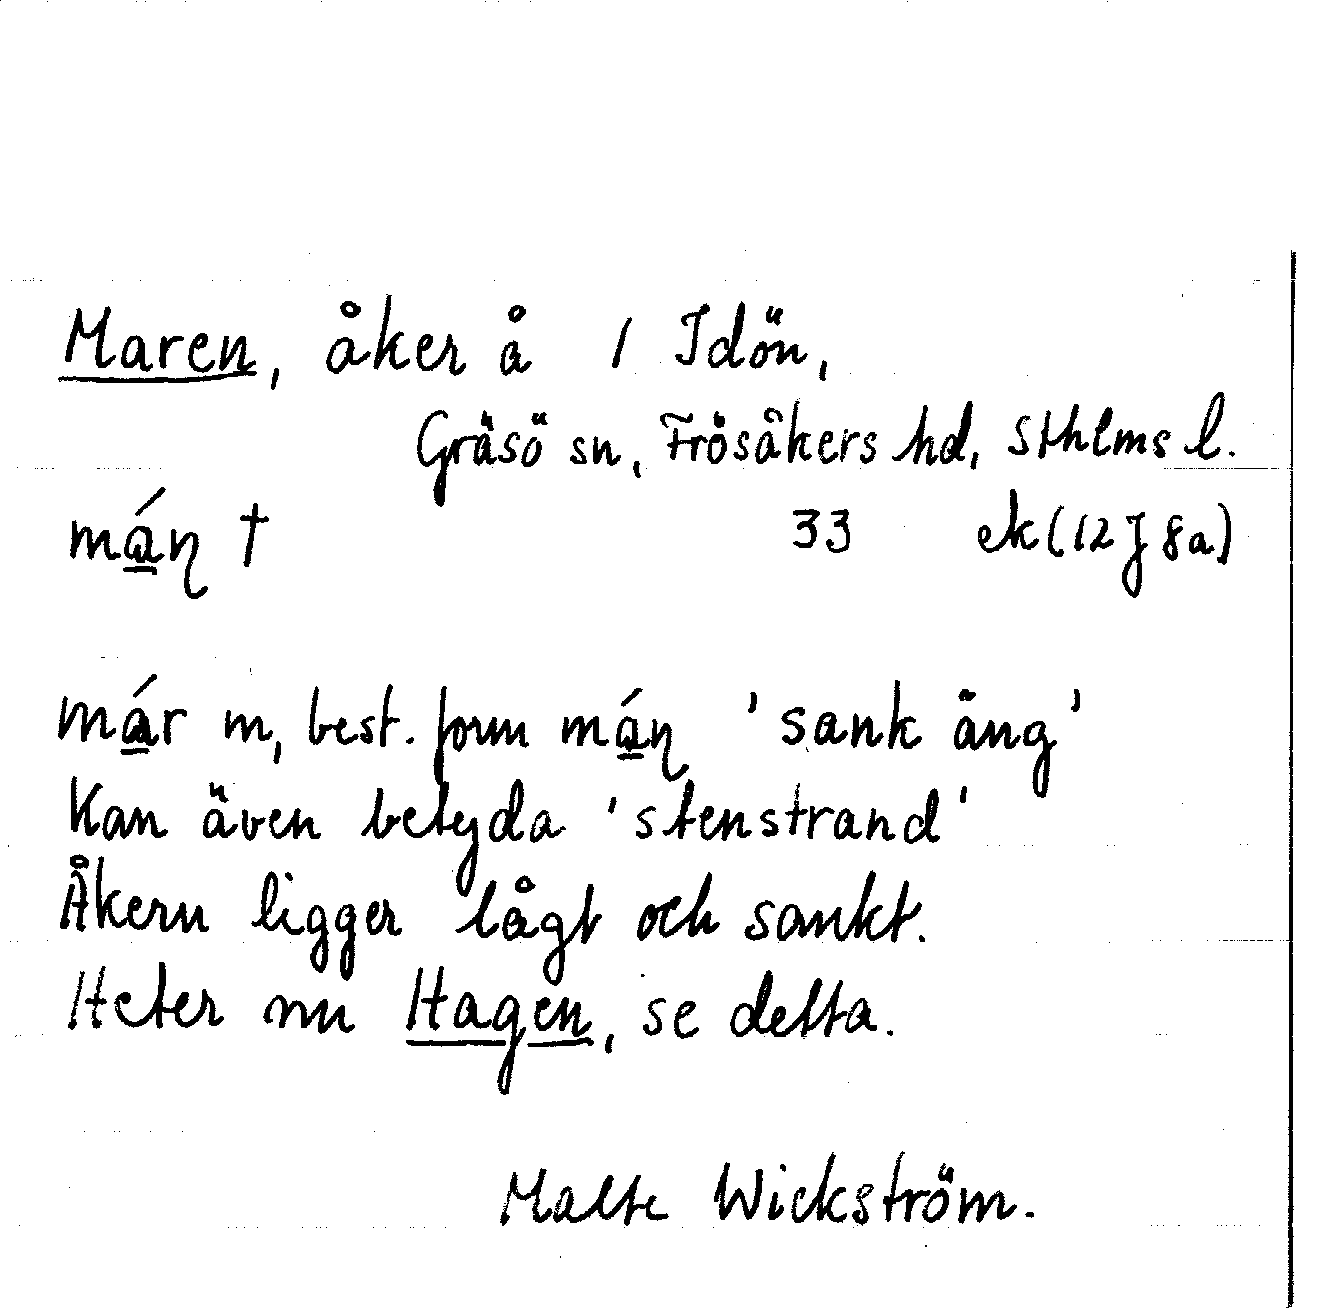 Maren, åker å 1 Idön,
Gräsö sn, Frösåkers hd, Sthlms l.
má̱ɳ † 33 ek (12 J 8a)
má̱r m, best. form má̱ɳ 'sank äng'
Kan även betyda 'stenstrand'
Åkern ligger lågt och sankt.
Heter nu Hagen, se detta.
Malte Wickström.